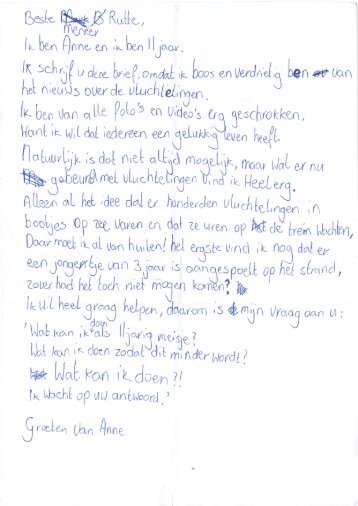 Beste Rutte,
meneer
Ik ben Anne en ik ben 11 jaar.
Ik schrijf u deze brief, omdat ik boos en verdrietig ben van
het nieuws over de vluchtelingen.
Ik ben van alle foto's en video's erg geschrokken,
Want ik wil dat iedereen een gelukkig leven heeft.
Natuurlijk is dat niet altijd mogelijk, maar wat er nu
gebeurd met vluchtelingen vind ik Heel erg.
Alleen al het idee dat er honderden vluchtelingen in
bootjes op zee varen en dat ze uren op de trein wachten,
Daar moet ik al van huilen! het ergste vind ik nog dat er
een jongentje van 3 jaar is aangespoelt op het strand,
zover had het toch niet mogen komen?
Ik wil heel graag helpen, daarom is mijn vraag aan u:
'Wat kan ik doen als 11 jarig meisje?
Wat kan ik doen zodat dit minder wordt?
Wat kan ik doen?!
ik wacht op uw antwoord.'
Groeten van Anne